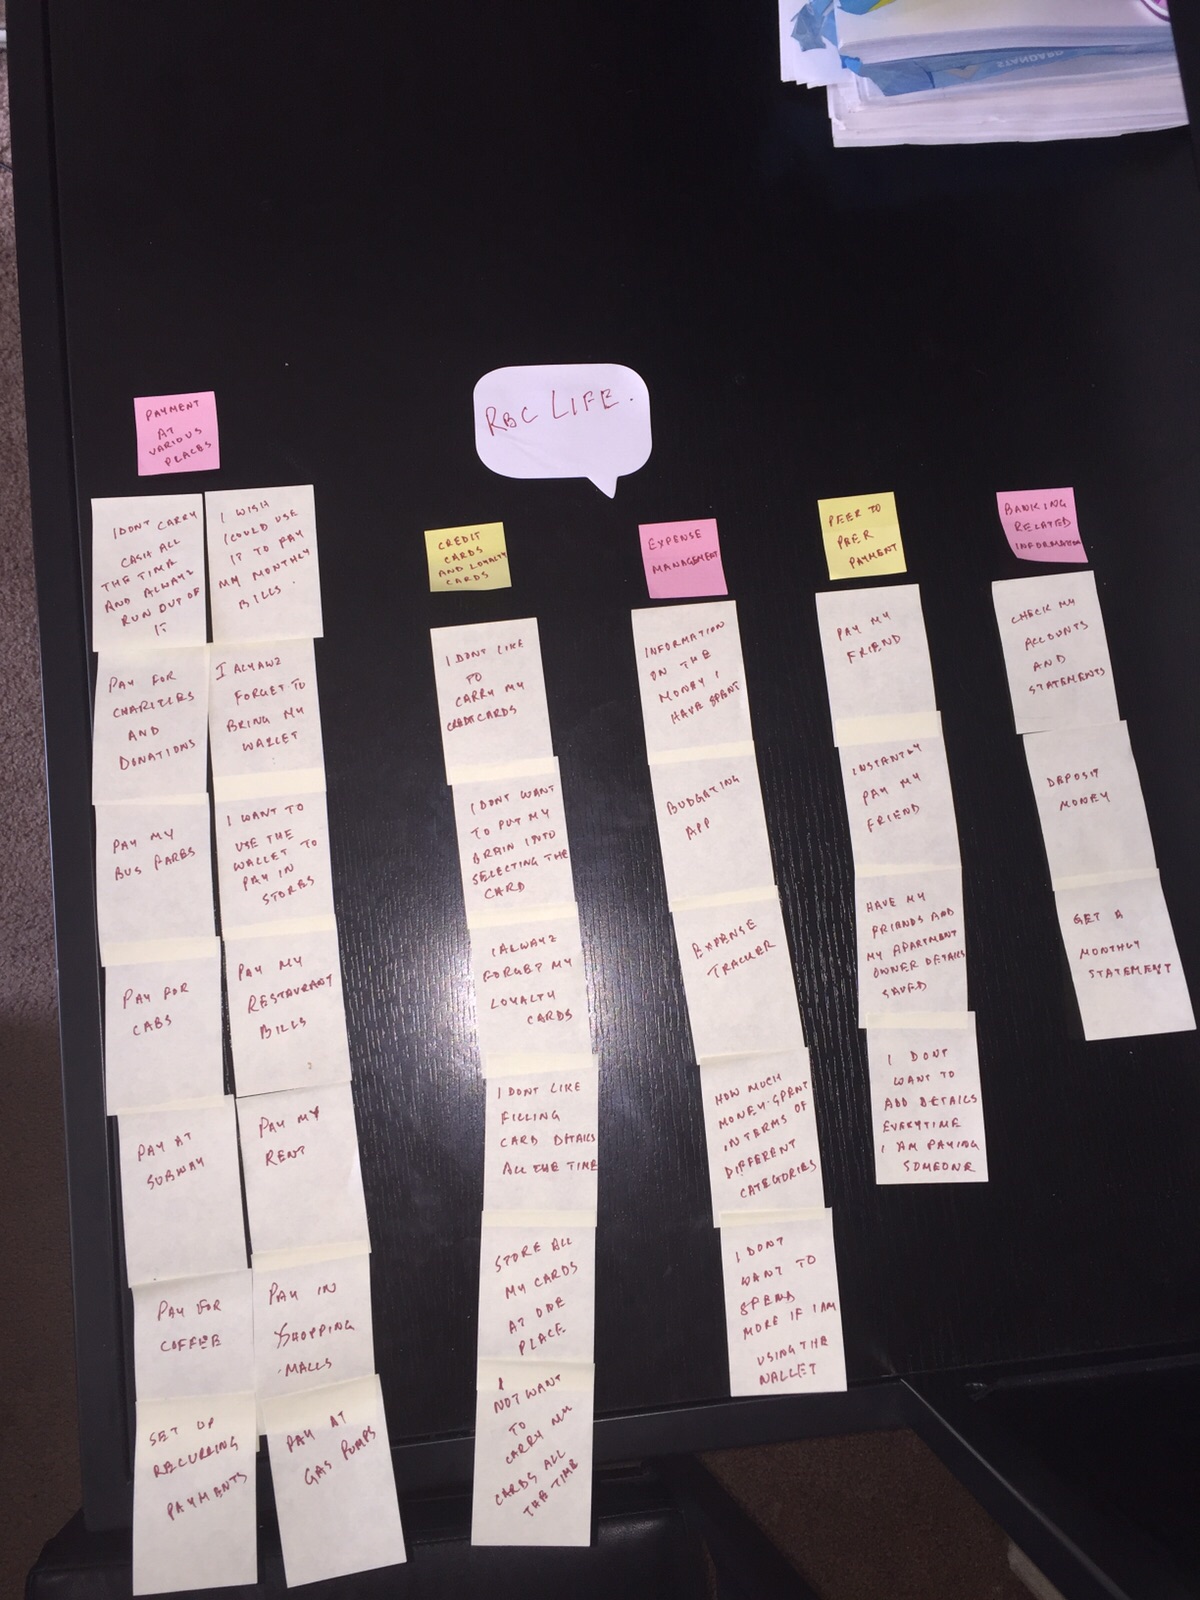 STANDARD
RBC LIFE.
PAYMENT
AT
VARIOUS
PLACES
I DONT CARRY
CASH ALL
THE TIME
AND ALWAYZ
RUN OUT OF
IT
PAY FOR
CHARITIES
AND
DONATIONS
PAY MY
BUS FARES
PAY FOR
CABS
PAY AT
SUBWAY
PAY FOR
COFFEE
SET UP
RECURRING
PAYMENTS
I WISH
I COULD USE
IT TO PAY
MY MONTHLY
BILLS
I ALYAWZ
FORGET TO
BRING MY
WALLET
I WANT TO
USE THE
WALLET TO
PAY IN
STORES
PAY MY
RESTAURANT
BILLS
PAY MY
RENT
PAY IN
SHOPPING
MALLS
PAY AT
GAS PUMPS
CREDIT
CARDS
AND LOYALTY
CARDS
I DONT LIKE
TO
CARRY MY
CREDITCARDS
I DONT WANT
TO PUT MY
BRAIN INTO
SELECTING THE
CARD
I ALWAYZ
FORGET MY
LOYALTY
CARDS
I DONT LIKE
FILLING
CARD DETAILS
ALL THE TIME
STORE ALL
MY CARDS
AT ONE
PLACE
I
NOT WANT
TO
CARRY MY
CARDS ALL
THE TIME
EXPENSE
MANAGEMENT
INFORMATION
ON THE
MONEY I
HAVE SPENT
BUDGATING
APP
EXPENSE
TRACKER
HOW MUCH
MONEY SPENT
IN TERMS OF
DIFFERENT
CATEGORIES
I DONT
WANT TO
SPEND
MORE IF I AM
USING THE
WALLET
PEER TO
PEER
PAYMENT
PAY MY
FRIEND
INSTANTLY
PAY MY
FRIEND
HAVE MY
FRIENDS AND
MY APARTMENT
OWNER DETAILS
SAVED
I DONT
WANT TO
ADD DETAILS
EVERYTIME
I AM PAYING
SOMEONE
BANKING
RELATED
INFORMATION
CHECK MY
ACCOUNTS
AND
STATEMENTS
DEPOSIT
MONEY
GET A
MONTHLY
STATEMENT